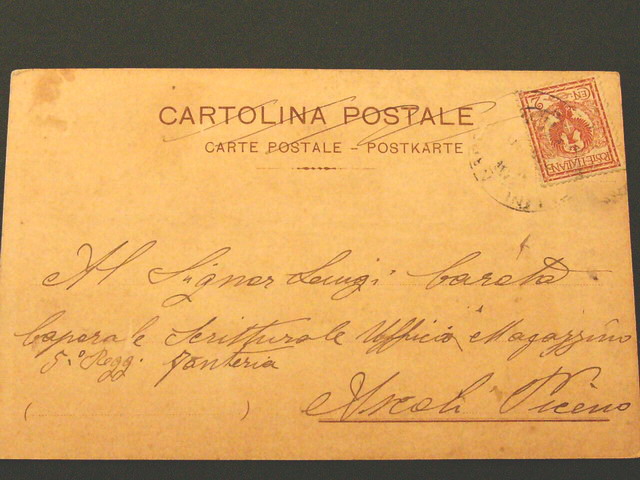 CARTOLINA POSTALE
CARTE POSTALE - POSTKARTE
POSTE ITALIANE
Al Signor Luigi Carota
Caporale Scritturale Ufficio Magazzino
5.° Regg. Fanteria
( )
Ascoli Piceno